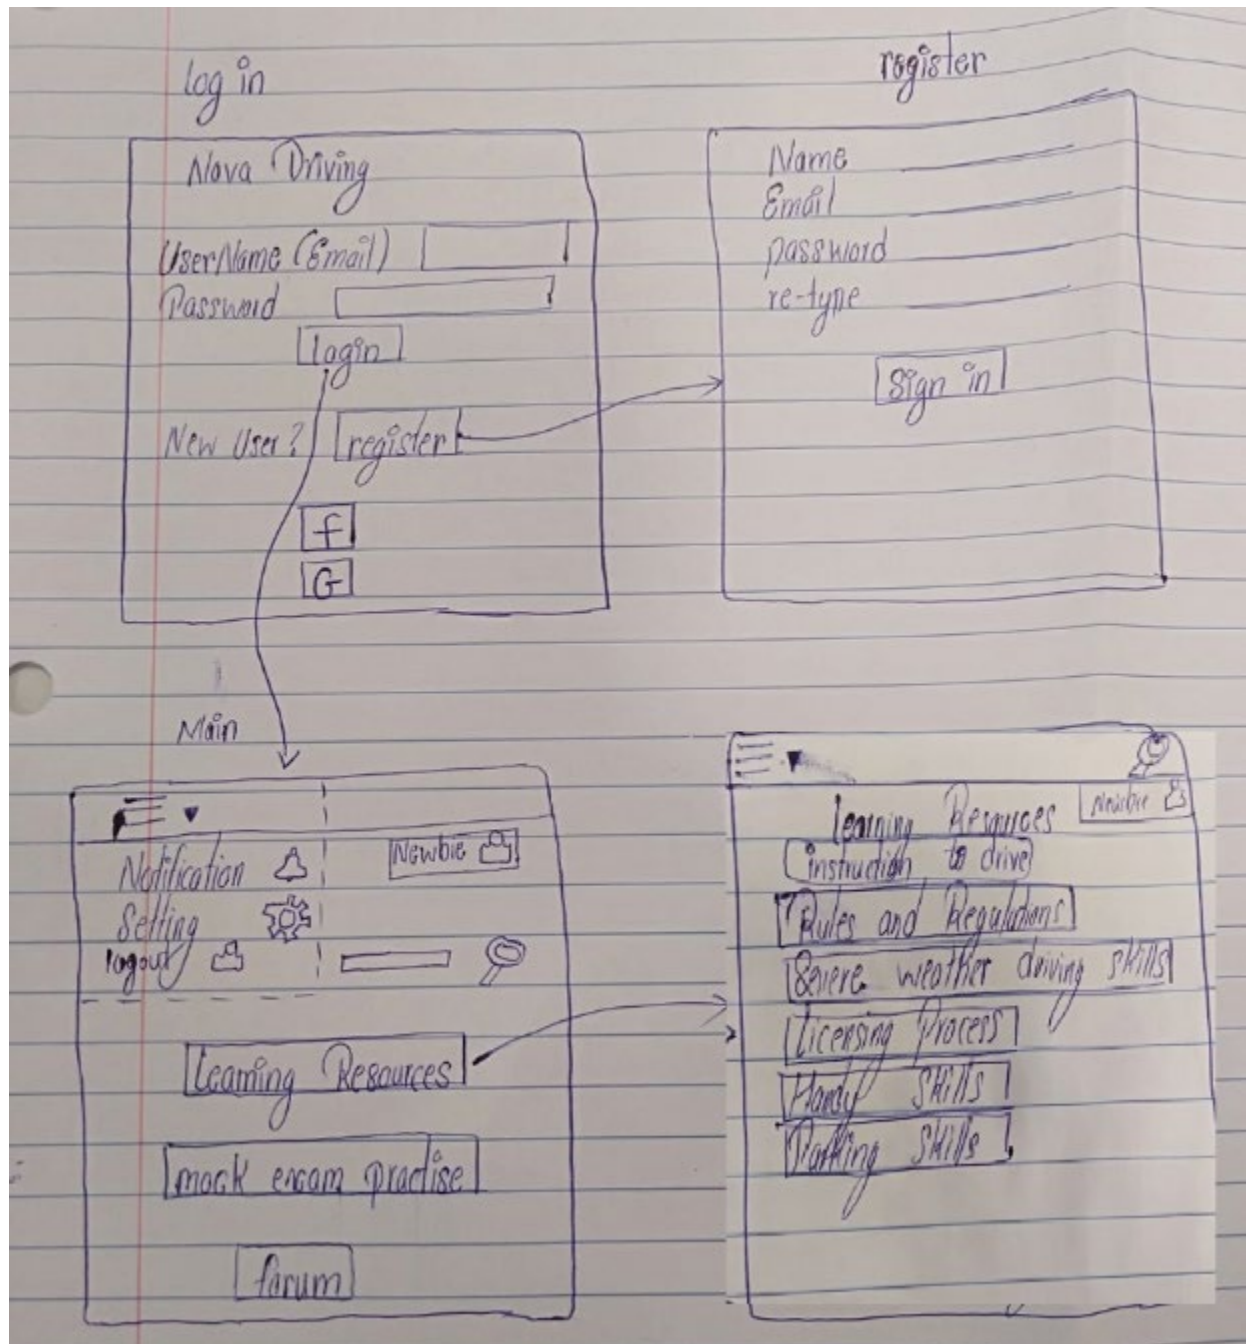 log in
Nova Driving
UserName (Email)
Password
login
New User? register
f
G
register
Name
Email
password
re-type
Sign in
Main
Notification
Setting
logout
Newbie
Learning Resources
mock exam practise
forum
Newbie
learning Resources
instruction to drive
Rules and Regulations
Severe weather driving skills
Licensing Process
Handy Skills
Parking Skills